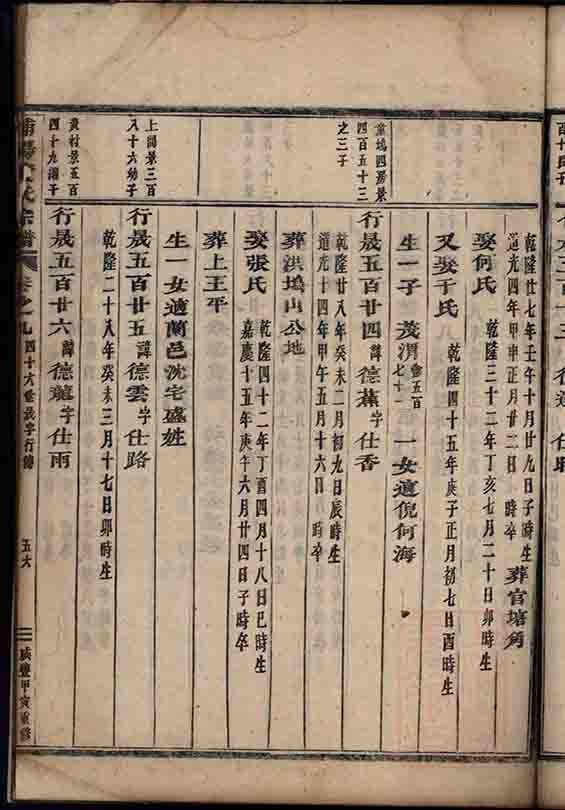 乾隆廿七年壬午十月廿九日子時生
道光四年甲申正月廿二日 時卒
葬官塘角
娶何氏
乾隆三十二年丁亥七月二十日卯時生
又娶于氏
乾隆四十五年庚子正月初七日酉時生
生一子 茂渭
五百七十一
一女適倪何海
葉塢四房景
四百五十三
之三子
行晟五百廿四 諱德蕉字仕香
乾隆廿八年癸未二月初九日辰時生
道光十四年甲午五月十六日 時卒
葬洪塢山公地
娶張氏
乾隆四十二年丁酉四月十八日巳時生
嘉慶十五年庚午六月廿四日子時卒
葬上王平
生一女適蘭邑沈宅盛姓
上陽景三百
八十六幼子
行晟五百廿五 諱德雲字仕路
乾隆二十八年癸未三月十七日卯時生
黃村景五百
四十九
行晟五百廿六 諱德龍字仕雨
宗譜 卷之九 四十六世晟字行傳 五六 咸豐甲寅重修